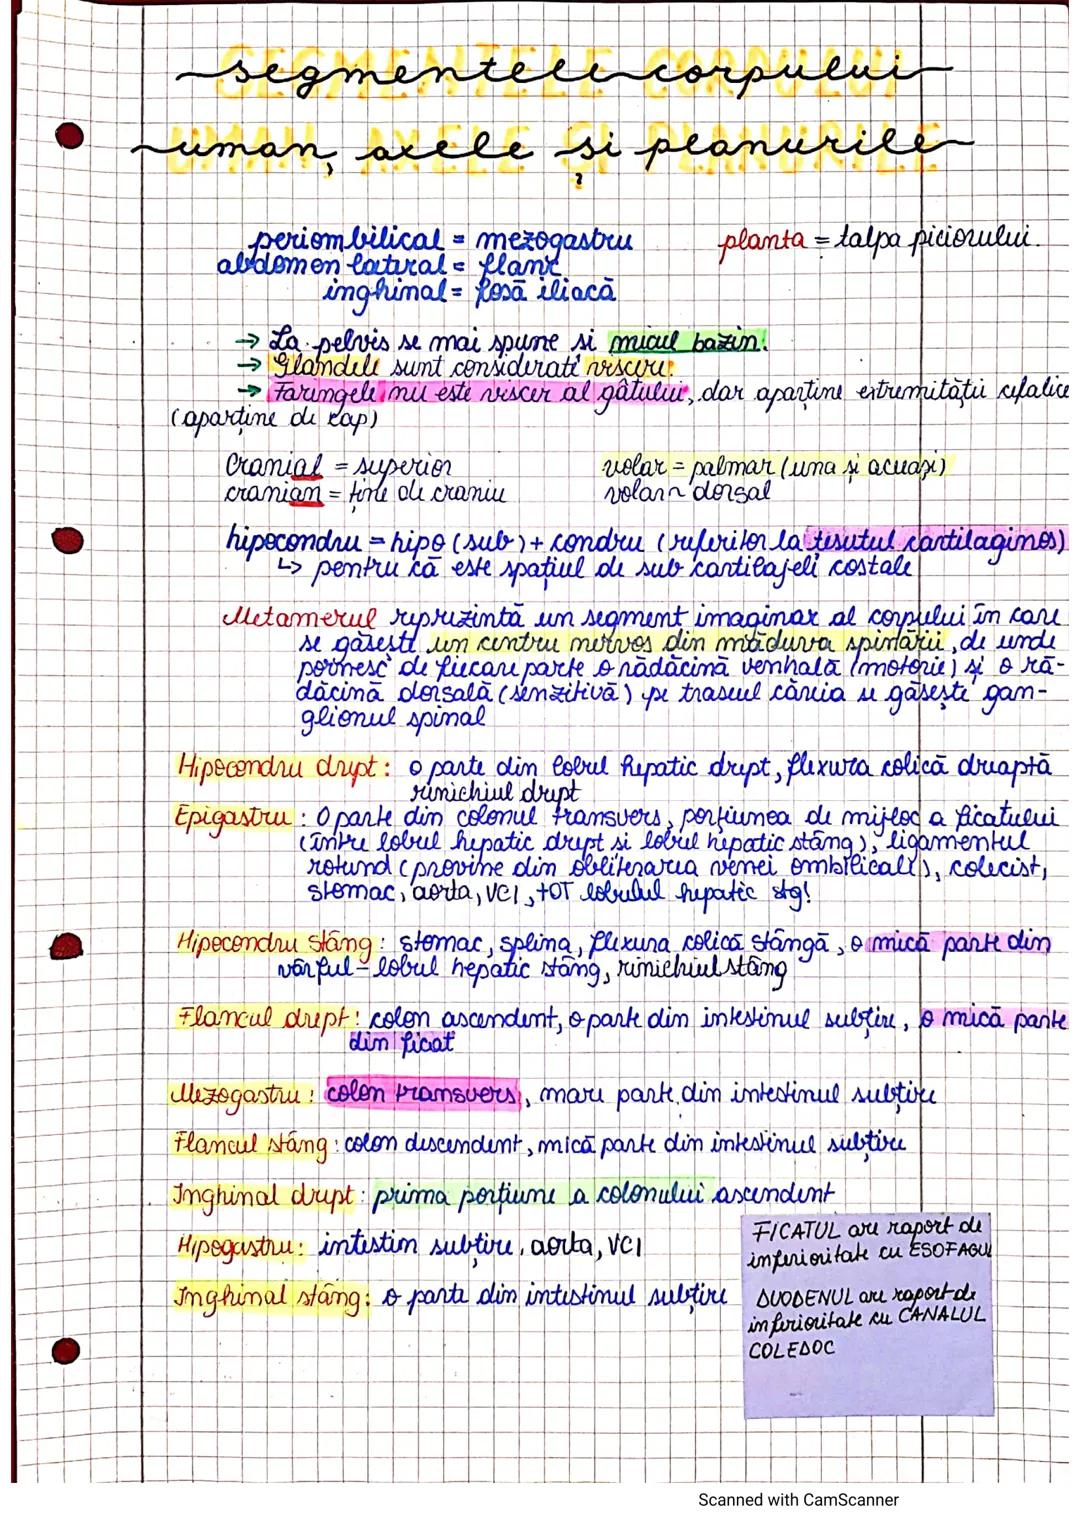 segmentele corpului
uman, axele și planurile
periombilical = mezogastru
planta = talpa piciorului.
abdomen lateral = flanc
inghinal = fosă iliacă
→ La pelvis se mai spune si micul bazin!
→ Glandele sunt considerate viscere!
→ Faringele nu este viscer al gâtului, dar aparține extremității cefalice
(aparține de cap)
Cranial = superior
cranian = ține de craniu
volar = palmar (una și aceeași)
volar ~ dorsal
hipocondru = hipo (sub) + condru (referitor la țesutul cartilaginos)
↳ pentru că este spațiul de sub cartilajele costale
Metamerul reprezintă un segment imaginar al corpului în care
se găsește un centru nervos din măduva spinării, de unde
pornesc de fiecare parte o rădăcină ventrală (motorie) și o ră-
dăcină dorsală (senzitivă) pe traseul căreia se găsește gan-
glionul spinal
Hipocondru drept: o parte din lobul hepatic drept, flexura colică dreaptă
rinichiul drept
Epigastru: O parte din colonul transvers, porțiunea de mijloc a ficatului
(între lobul hepatic drept si lobul hepatic stâng), ligamentul
rotund (provine din obliterarea venei ombilicale), colecist,
stomac, aorta, VCI, TOT lobulul hepatic stg!
Hipocondru stâng: stomac, splina, flexura colică stângă, o mică parte din
vârful-lobul hepatic stâng, rinichiul stâng
Flancul drept: colon ascendent, o parte din intestinul subțire, o mică parte
din ficat
Mezogastru: colon transvers, mare parte din intestinul subțire
Flancul stâng: colon descendent, mică parte din intestinul subțire
Inghinal drept: prima porțiune a colonului ascendent
Hipogastru: intestin subțire, aorta, VCI
Inghinal stâng: o parte din intestinul subțire
FICATUL are raport de
inferioritate cu ESOFAGU
DUODENUL are raport de
inferioritate cu CANALUL
COLEDOC
Scanned with CamScanner